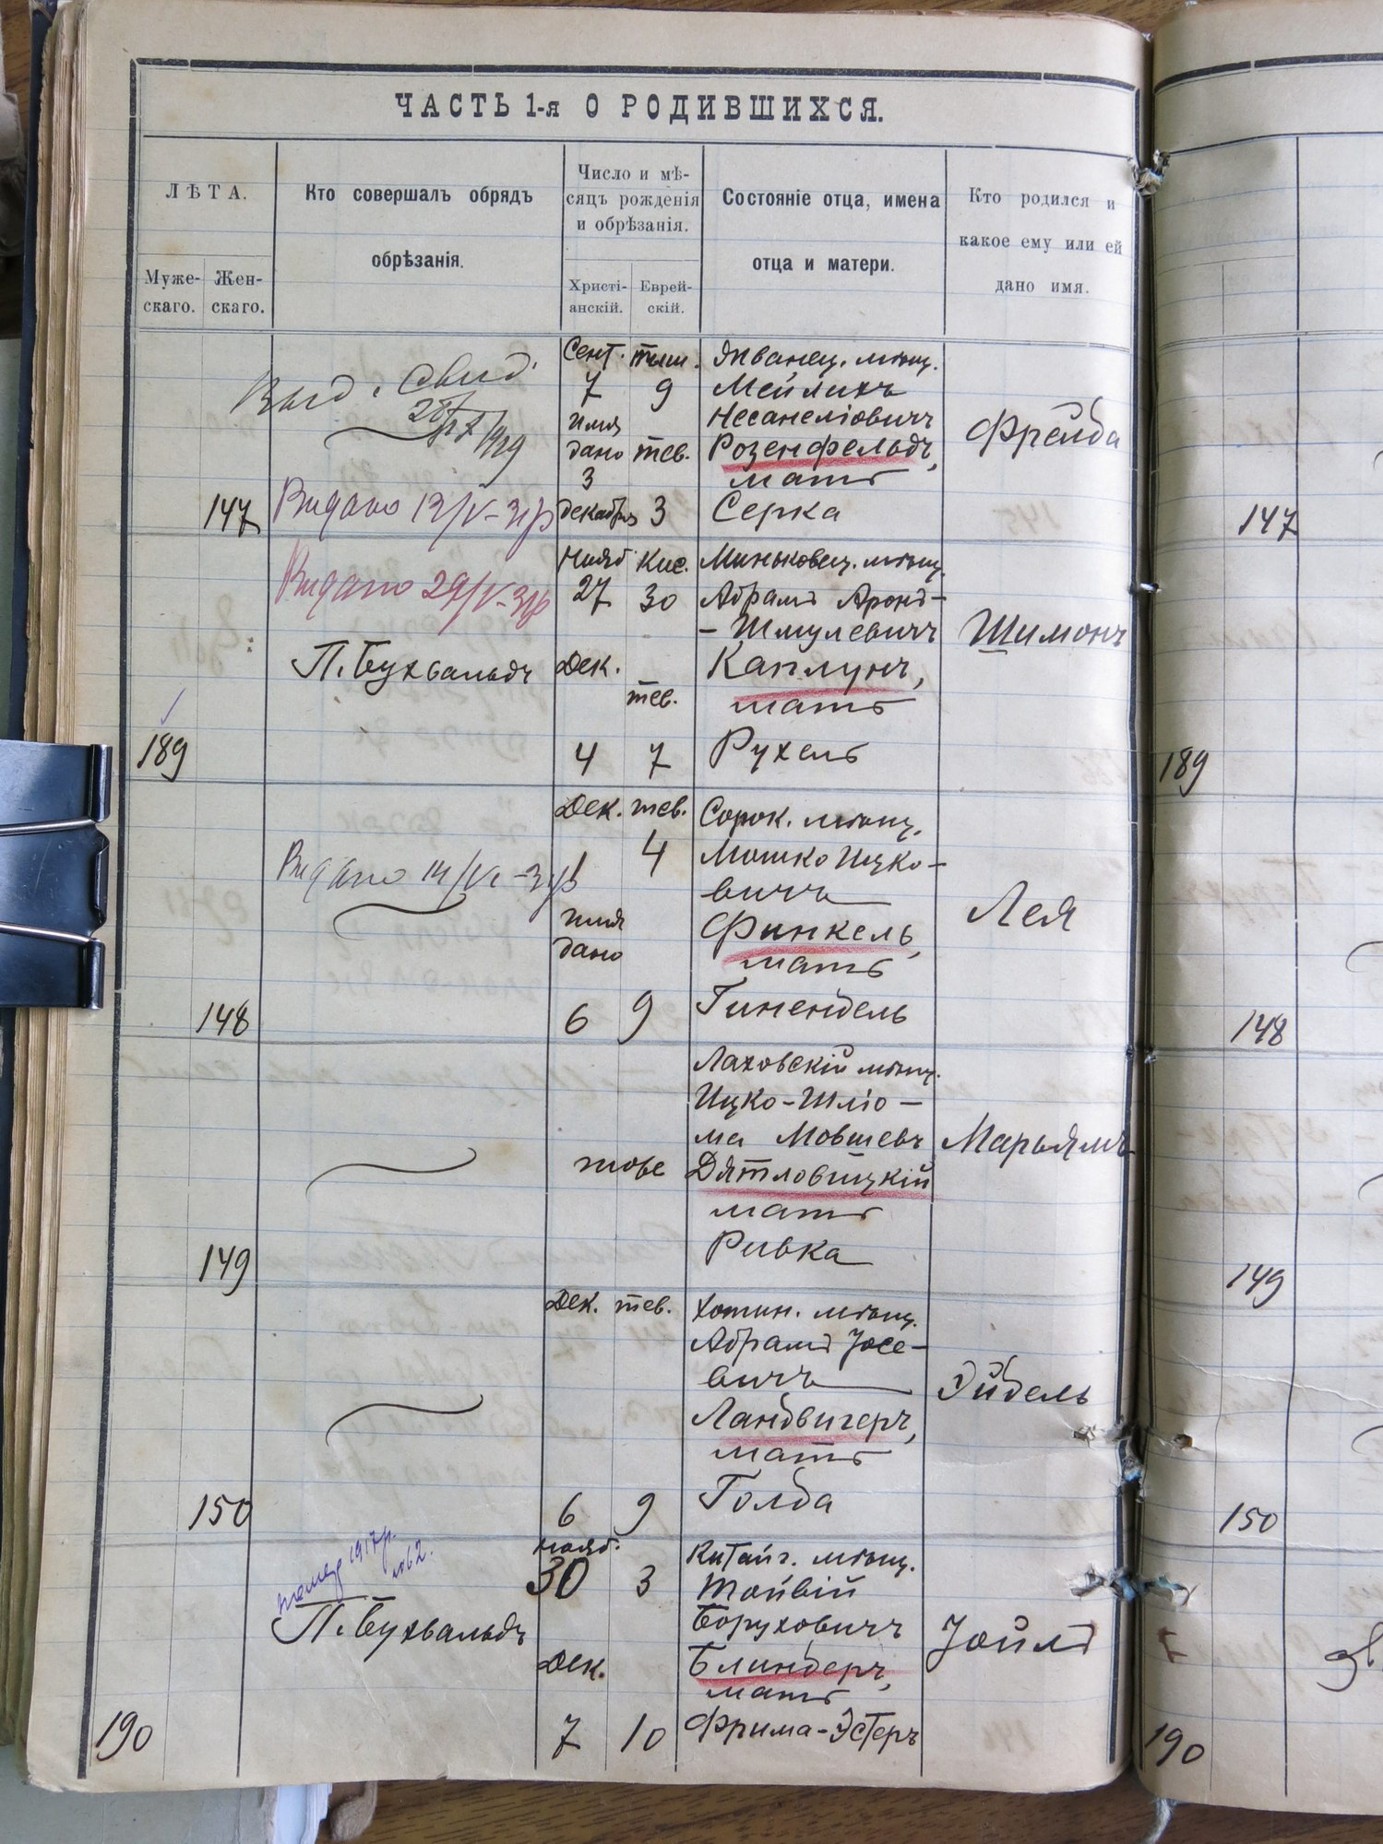 ЧАСТЬ 1-я О РОДИВШИХСЯ.
ЛѢТА.
Муже-
скаго.
Жен-
скаго.
Кто совершалъ обрядъ
обрѣзанія.
Число и мѣ-
сяцъ рожденія
и обрѣзанія.
Христі-
анскій.
Еврей-
скій.
Состояніе отца, имена
отца и матери.
Кто родился и
какое ему или ей
дано имя.
147
Выд. Свид.
Видано 12/V-31р
Сент. тиш.
7 9
имя
дано тев.
3
декабря 3
Жванец. мѣщ.
Мейлихъ
Несанеліовичъ
Розенфельдъ,
мать
Серка
Фрейда
147
189
Видано 29/V-31р
П. Бухвальдъ
Нояб Кис.
27 30
Дек.
тев.
4 7
Миньковец. мѣщ.
Абрамъ Аронъ-
-Шмулевичъ
Каплунъ,
мать
Рухель
Шимонъ
189
148
Видано 14/VI-31р
Дек. тев.
1 4
имя
дано
6 9
Сорок. мѣщ.
Мошко Ицко-
вичъ
Финкель,
мать
Гинендель
Лея
148
149
тоже
Лаховскій мѣщ.
Ицко-Шліо-
ма Мовшевъ
Дятловицкій
мать
Ривка
Марьямъ
149
150
Дек. тев.
6 9
Хотин. мѣщ.
Абрамъ Іосе-
вичъ
Ландвигеръ,
мать
Голда
Эйдель
150
190
1917р.
П. Бухвальдъ
нояб.
30 3
Дек.
7 10
Китайг. мѣщ.
Тойвій
Боруховичъ
Блиндеръ,
мать
Фрима-Эстеръ
Іойлъ
190